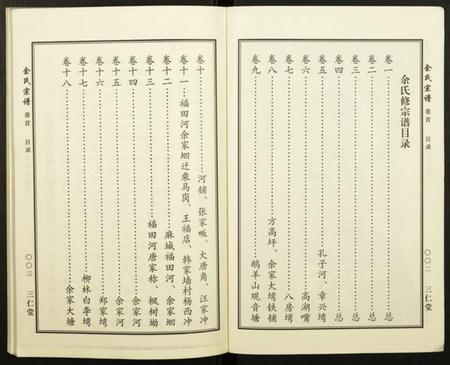 余氏宗谱
卷首
目录
〇〇二
三仁堂
余氏修宗谱目录
卷一……总
卷二……总
卷三……总
卷四……总
卷五……孔子河、章兴塆
卷六……高湖嘴
卷七……八房塆
卷八……方高坪、余家大塆铁铺
卷九……鹅羊山观音塘
卷十……河铺、张家畈、大唐角、汪家冲
卷十一……福田河余家垇迁乘马岗、王福店、韩家墙村杨西冲
卷十二……麻城福田河、余家垇
卷十三……福田河唐家称、枫树坳
卷十四……余家河
卷十五……余家河
卷十六……郑家塆
卷十七……柳林白李塆
卷十八……余家大塘
余氏宗谱
卷首
目录
〇〇三
三仁堂